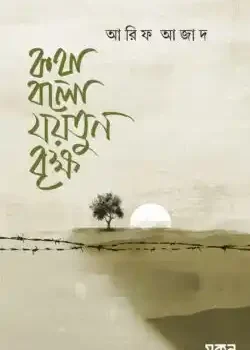 আরিফ আজাদ
কথা
বলো
যয়তুন
বৃক্ষ